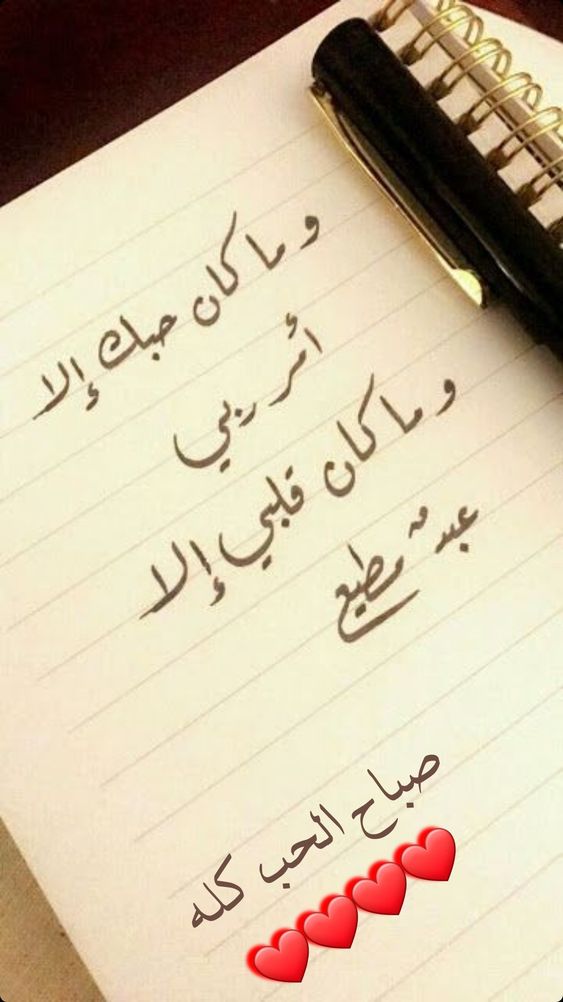 وما كان حبك إلا
أمر ربي
وما كان قلبي إلا
عبدٌ مطيع
صباح الحب كله